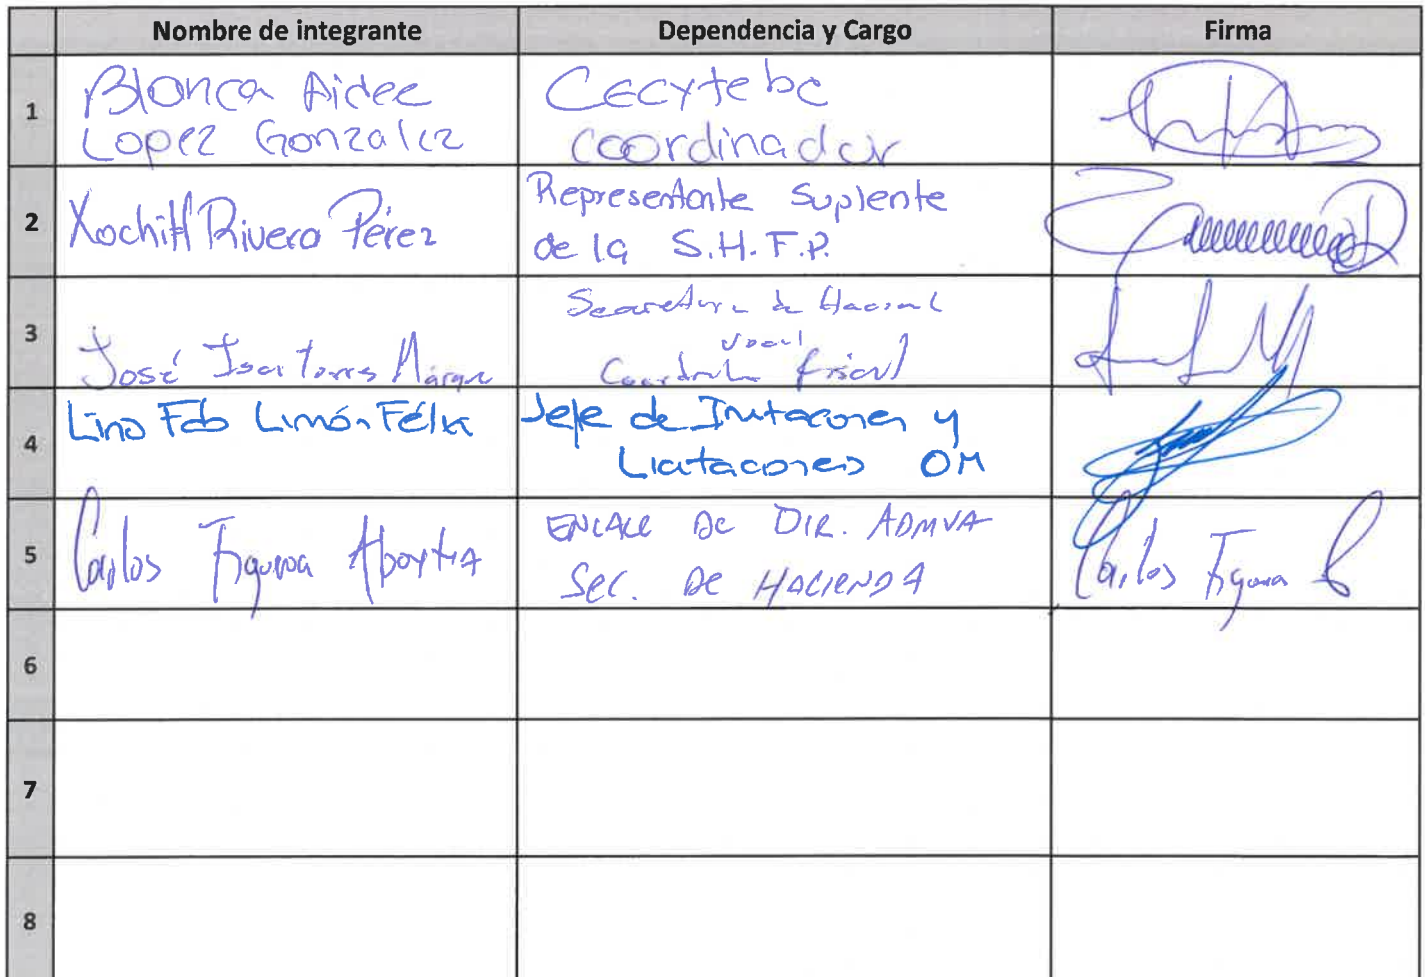 Nombre de integrante Dependencia y Cargo Firma
1
Blanca Aidee
Lopez Gonzalez
Cecytebc
coordinador
2
Xochitl Rivera Pérez
Representante Suplente
de la S.H.F.P.
3
José Torres
Vocal
Fiscal
4
Lino Fdo Limón Félix
Jefe de Invitaciones y
Licitaciones OM
5
Carlos Figueroa
ENLACE DE DIR. ADMVA
SEC. DE HACIENDA
Carlos Figueroa
6
7
8